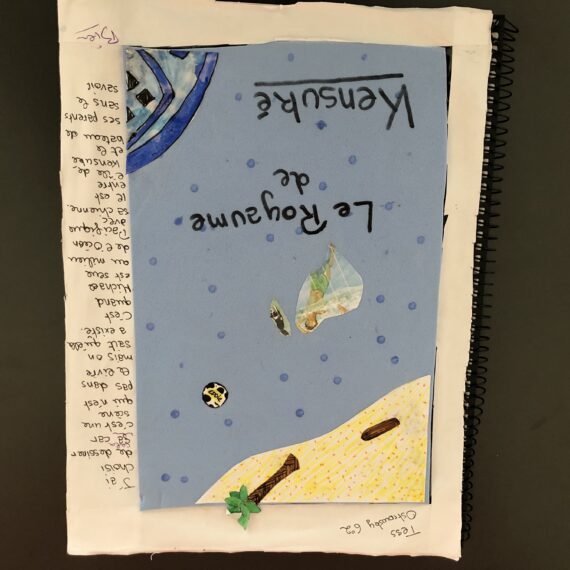 Tess
6°2
Le Royaume
de
Kensuké
J'ai
choisi
de dessiner
ça car
c'est une
scène
qui n'est
pas dans
le livre
mais on
sait qu'ela
a existé.
C'est
quand
Michael
est seul
au milieu
de l'Océan
Pacifique
avec
sa chienne.
Il est
entre
l'île de
Kensuké
et le
bateau de
ses parents
sans le
savoir
Bien